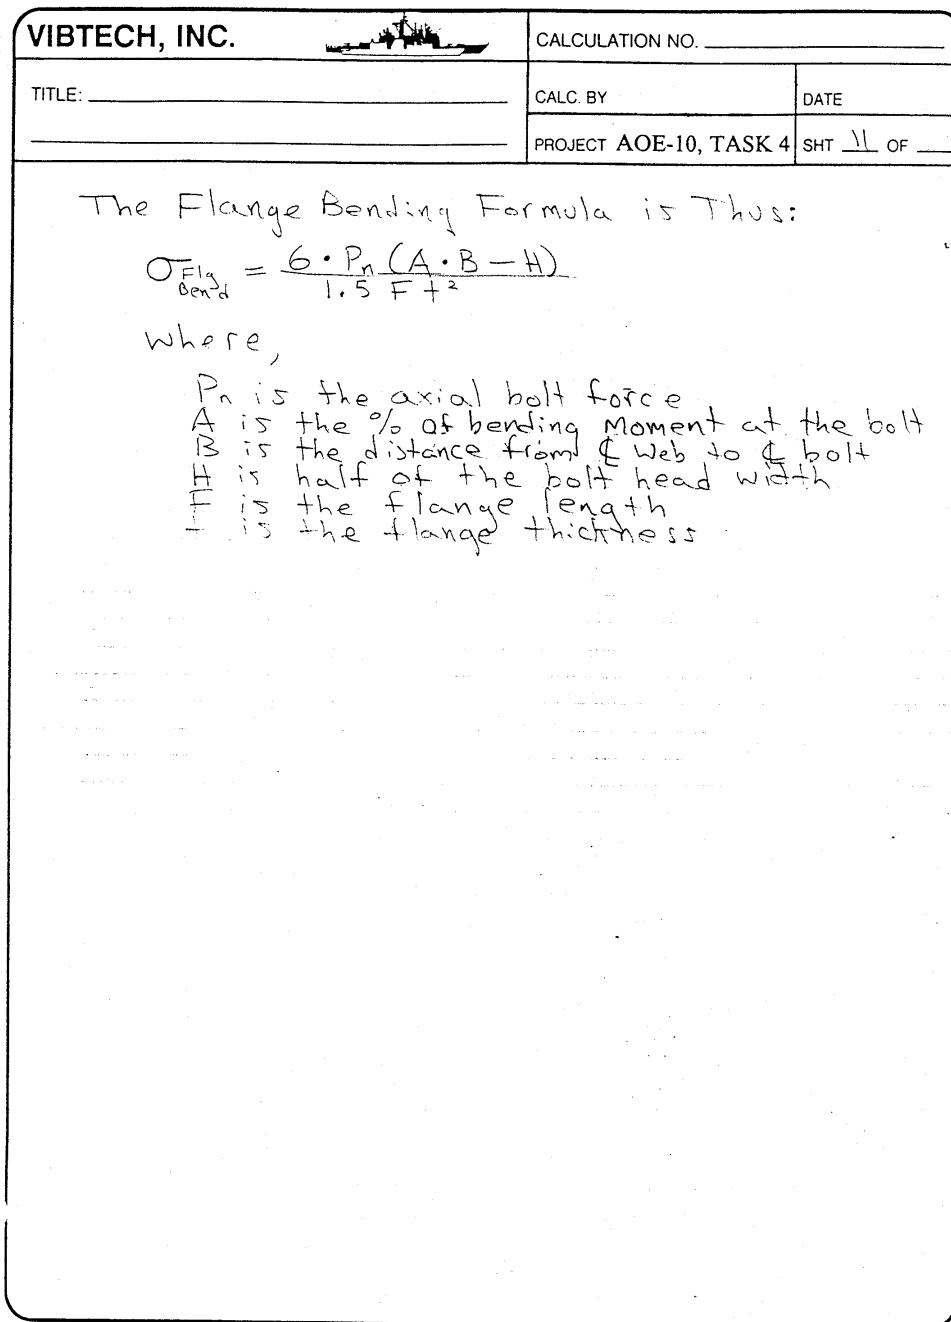 VIBTECH, INC.
CALCULATION NO.
TITLE:
CALC. BY
DATE
PROJECT AOE-10, TASK 4
SHT 11 OF
The Flange Bending Formula is Thus:
σ Flg Bend = 6 · Pn (A · B − H) / 1.5 F t²
where,
Pn is the axial bolt force
A is the % of bending Moment at the bolt
B is the distance from ℄ Web to ℄ bolt
H is half of the bolt head width
F is the flange length
t is the flange thickness